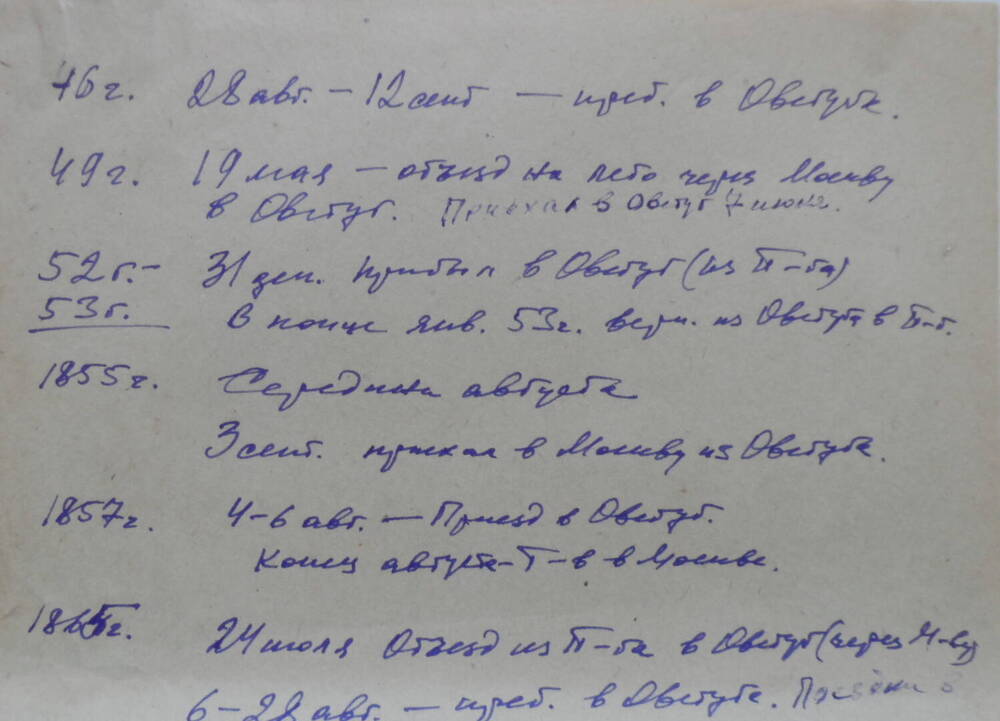 46г. 28 авг. – 12 сент – преб. в Овстуге.
49г. 19 мая – отъезд на лето через Москву
в Овстуг. Приехал в Овстуг 7 июня.
52г.- 31 дек. прибыл в Овстуг (из П-га)
53г. В конце янв. 53г. верн. из Овстуга в П-г.
1855г. Середина августа
3 сент. приехал в Москву из Овстуга.
1857г. 4-6 авг. – Приезд в Овстуг.
Конец августа – Т-в в Москве.
24 июля Отъезд из П-га в Овстуг (через М-ву)
6-28 авг. – преб. в Овстуге. Поездки в